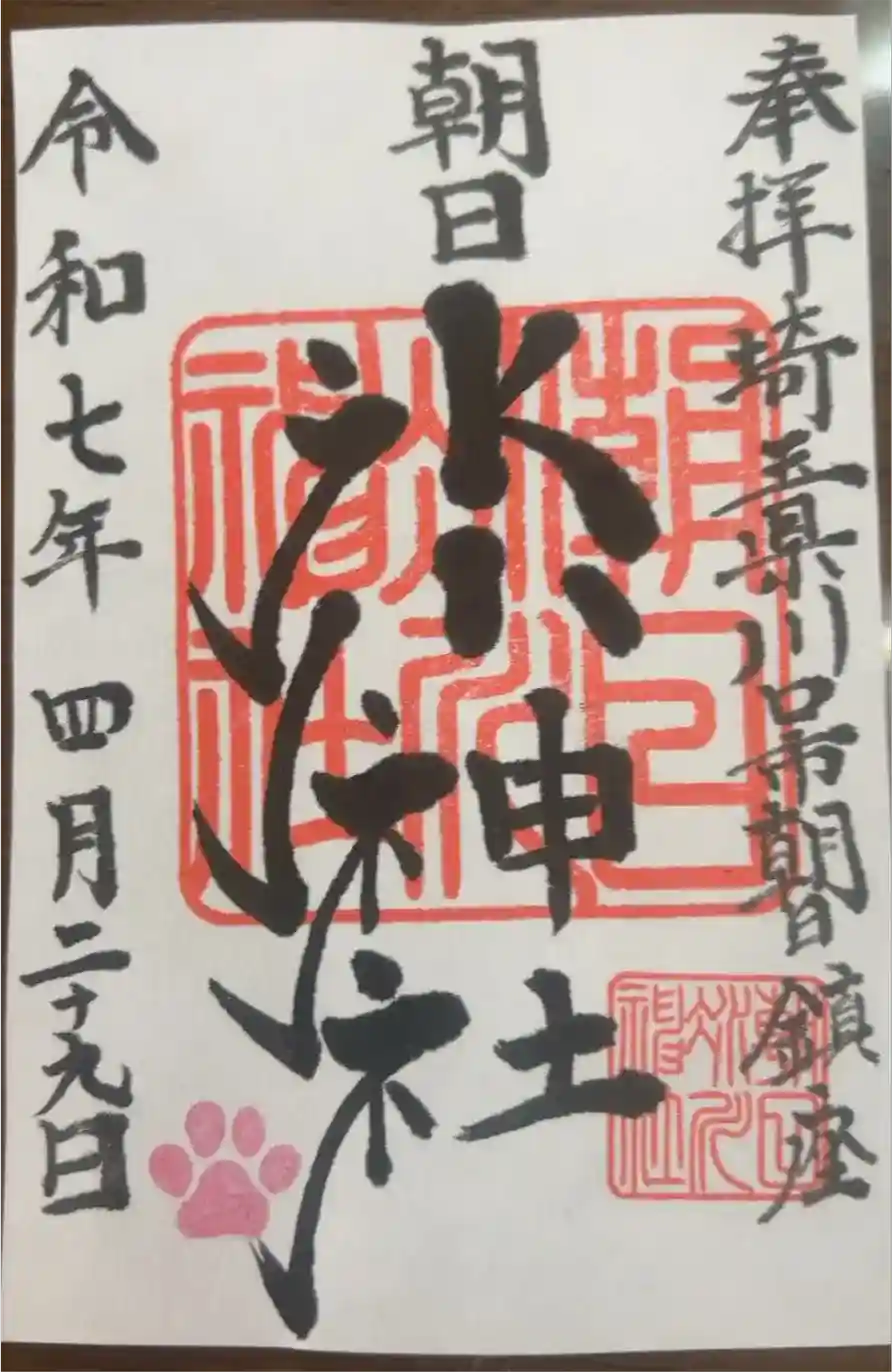 奉拝 埼玉県川口市朝日鎮座
朝日氷川神社
令和七年 四月二十九日
朝日氷川神社
朝日氷川神社